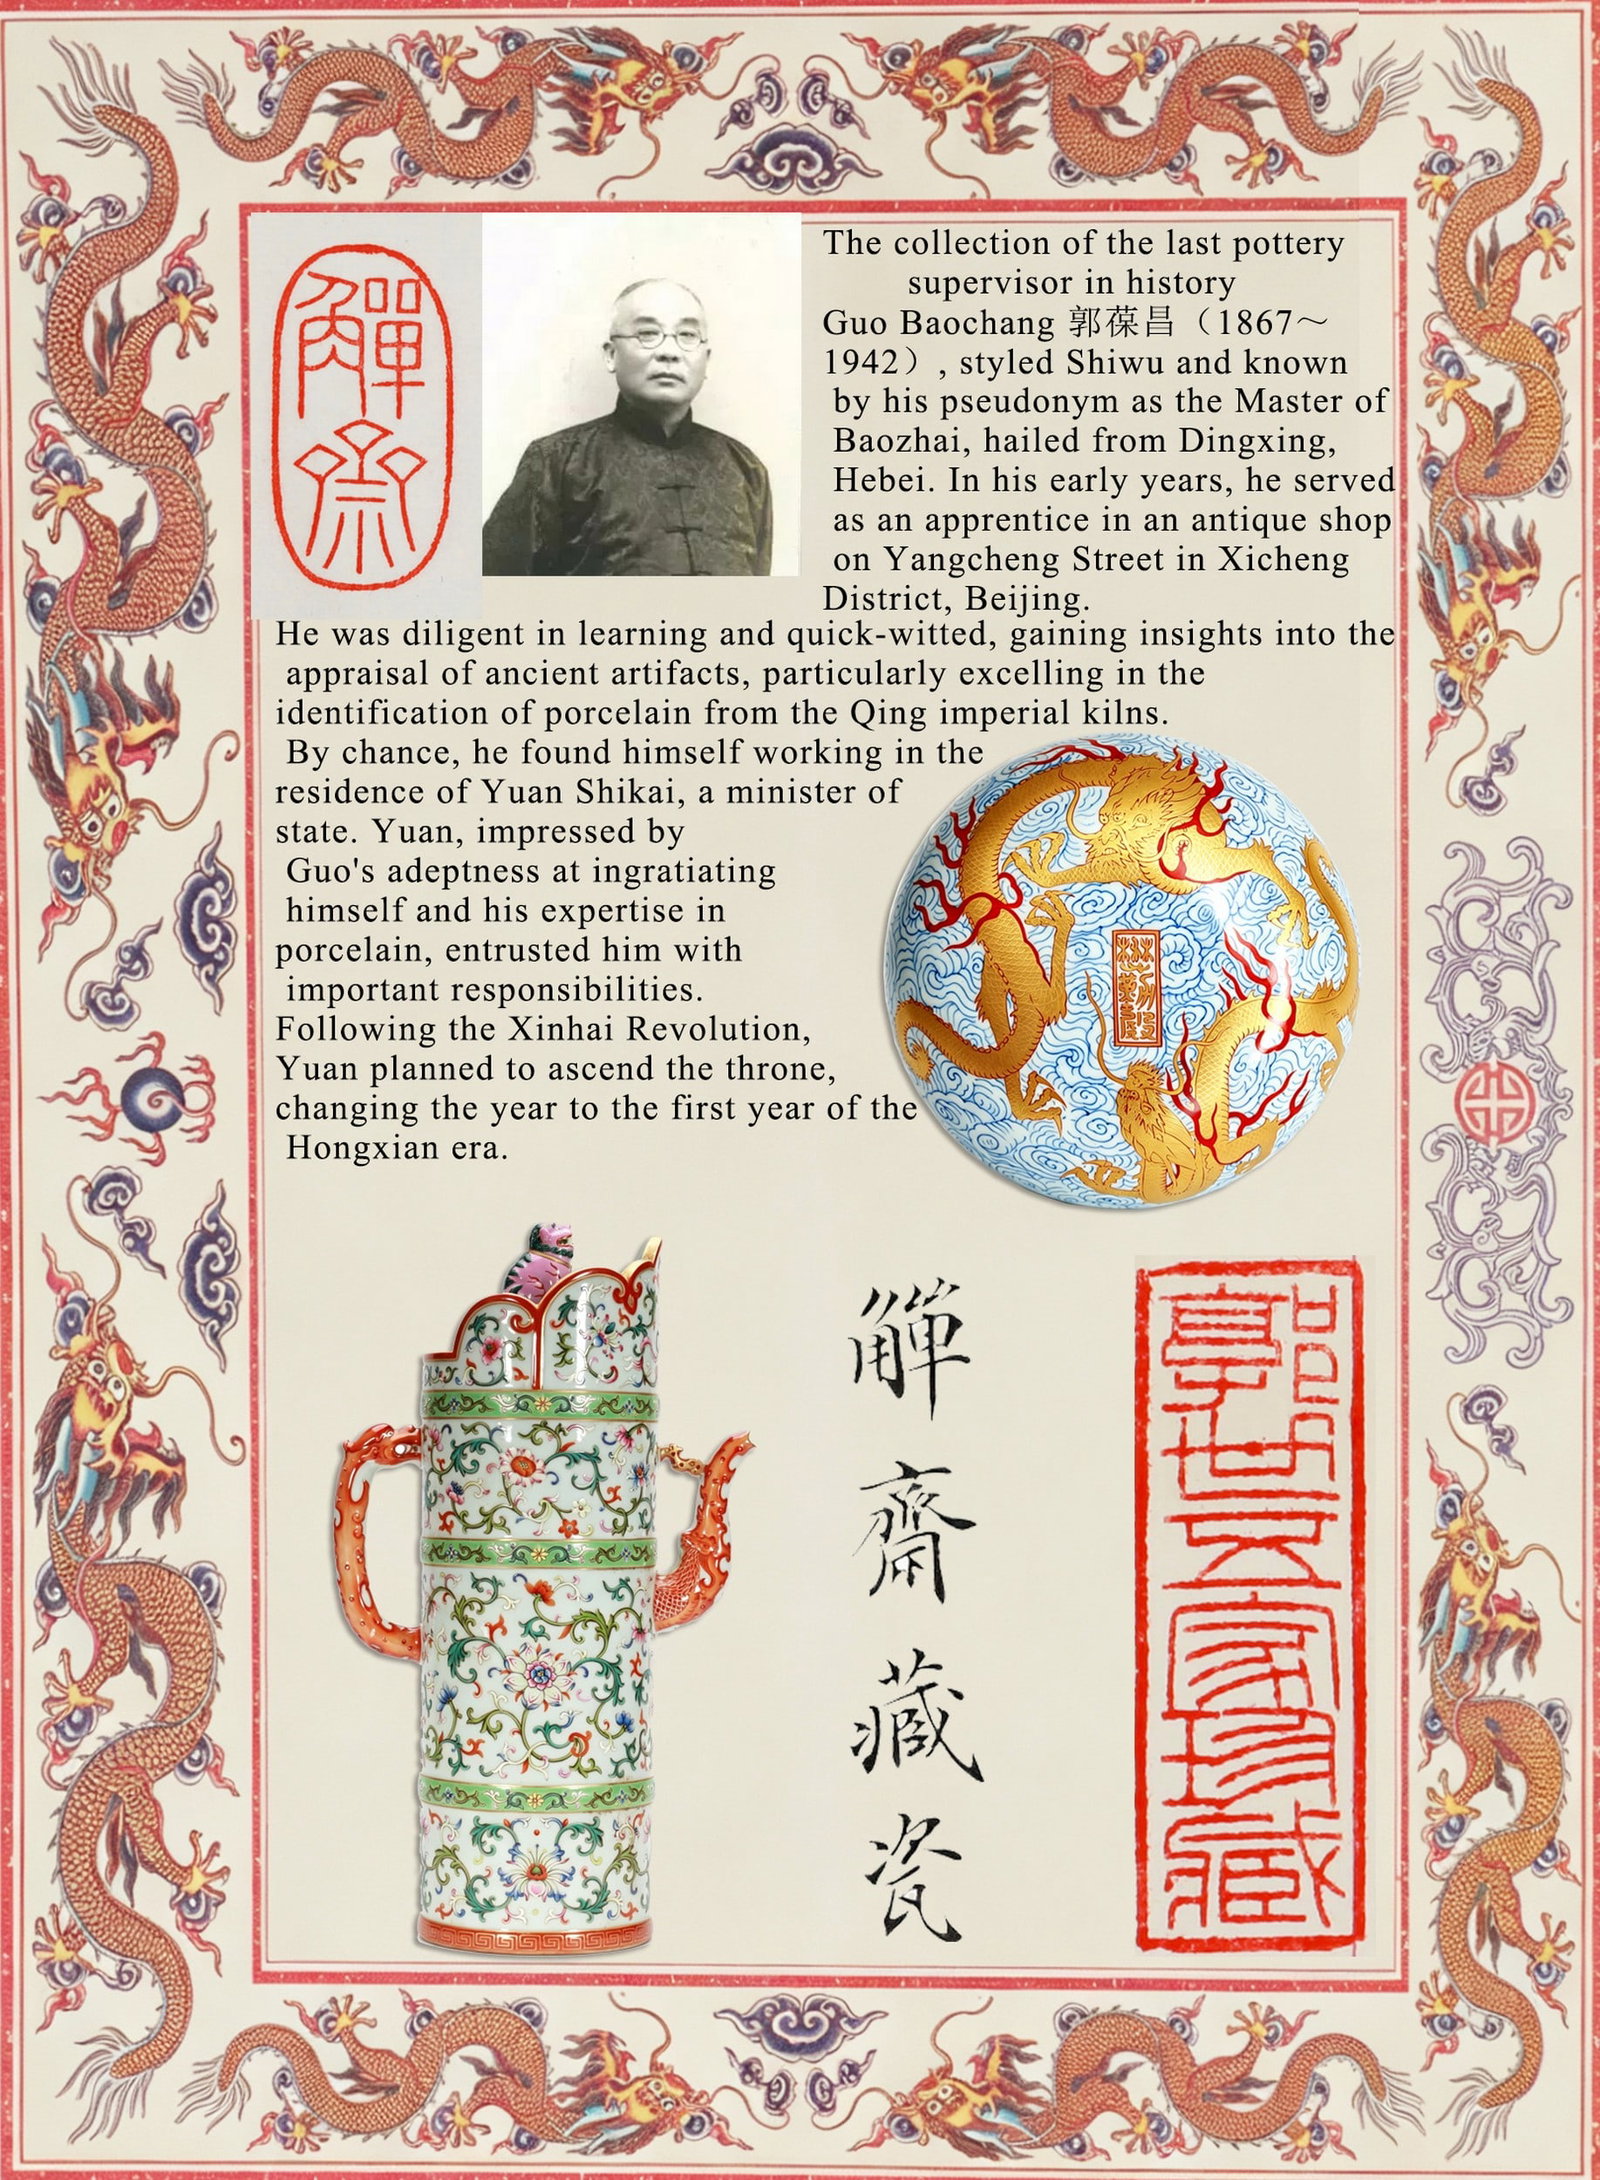 觶齋
The collection of the last pottery
supervisor in history
Guo Baochang 郭葆昌（1867～
1942）, styled Shiwu and known
by his pseudonym as the Master of
Baozhai, hailed from Dingxing,
Hebei. In his early years, he served
as an apprentice in an antique shop
on Yangcheng Street in Xicheng
District, Beijing.
He was diligent in learning and quick-witted, gaining insights into the
appraisal of ancient artifacts, particularly excelling in the
identification of porcelain from the Qing imperial kilns.
By chance, he found himself working in the
residence of Yuan Shikai, a minister of
state. Yuan, impressed by
Guo's adeptness at ingratiating
himself and his expertise in
porcelain, entrusted him with
important responsibilities.
Following the Xinhai Revolution,
Yuan planned to ascend the throne,
changing the year to the first year of the
Hongxian era.
觶齋藏瓷
郭世五家珍藏